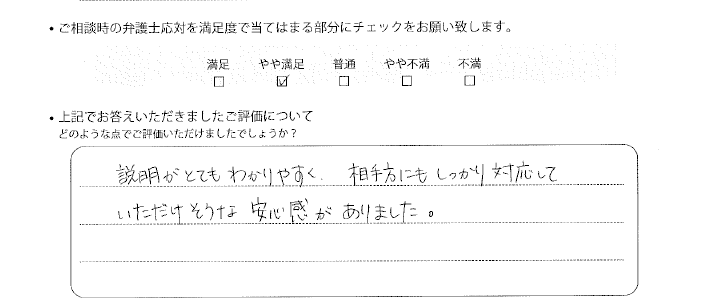 ・ご相談時の弁護士応対を満足度で当てはまる部分にチェックをお願い致します。
満足 やや満足 普通 やや不満 不満
□ ☑ □ □ □
・上記でお答えいただきましたご評価について
どのような点でご評価いただけましたでしょうか？
説明がとてもわかりやすく、相手方にもしっかり対応して
いただけそうな安心感がありました。